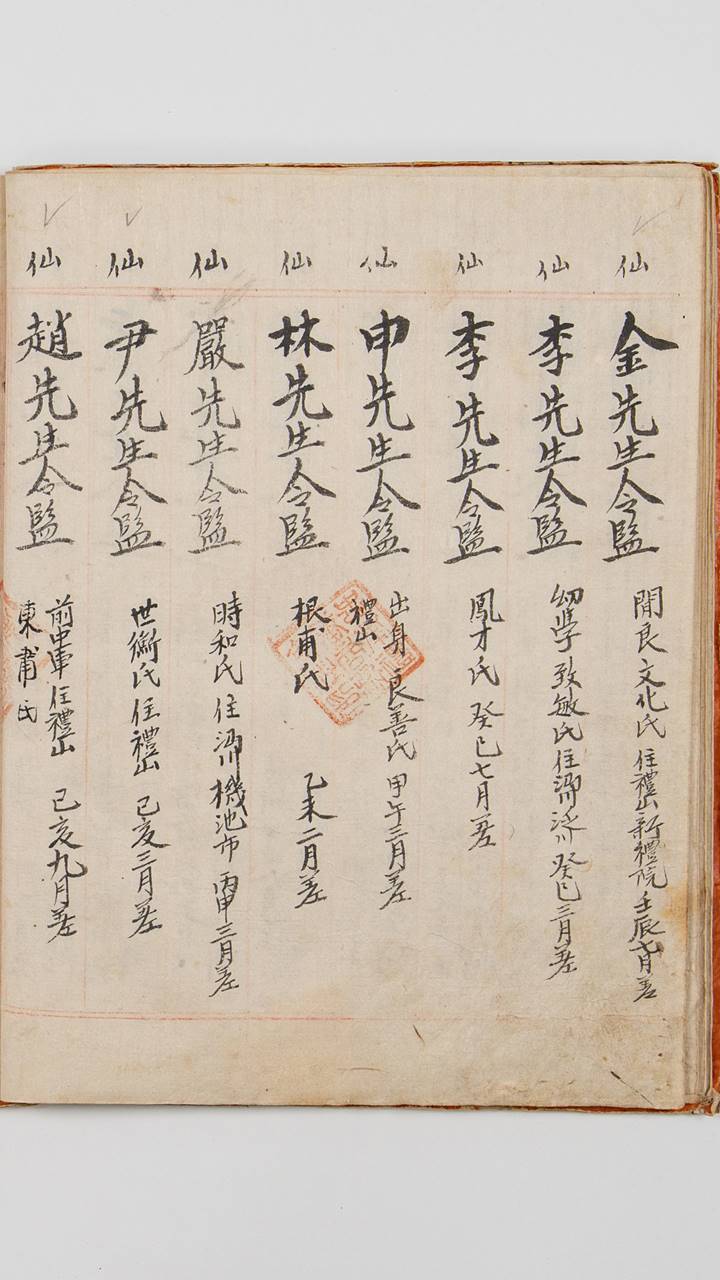 仙 金先生令監 閒良文化氏 住禮山新禮院 壬辰七月差
仙 李先生令監 幼學致敏氏 住 癸巳三月差
仙 李先生令監 鳳才氏 癸巳七月差
仙 申先生令監 出身 良善氏 甲午三月差
禮山
仙 林先生令監 根甫氏 乙未二月差
仙 嚴先生令監 時和氏 住 機池市 丙申三月差
仙 尹先生令監 世衡氏 住禮山 己亥三月差
仙 趙先生令監 前中軍 住禮山 己亥九月差
東甫氏